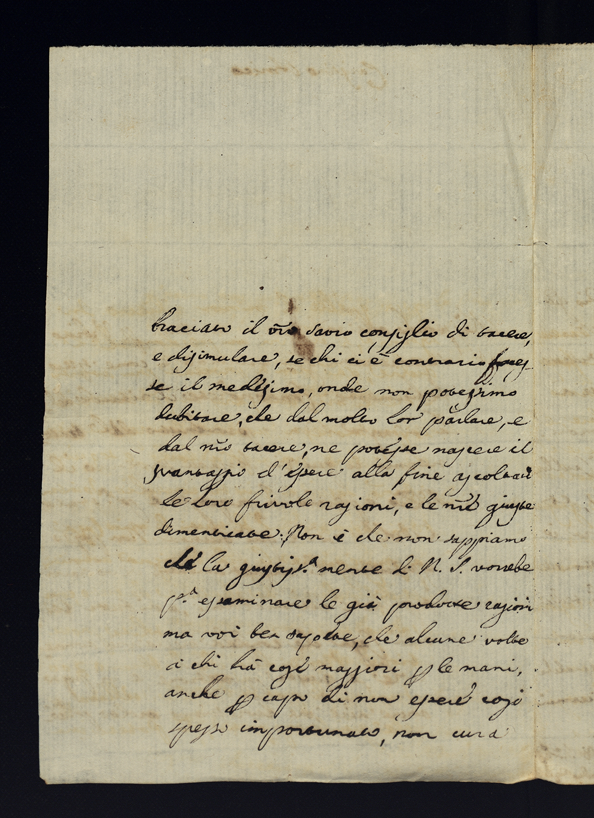 bracciato il vr̃o savio consiglio di tacere,
e dissimulare, se chi ci è contrario faces-
se il medesimo, onde non potessimo
dubitare, che dal molto lor parlare, e
dal nr̃o tacere, ne potesse nascere il
svantaggio d'essere alla fine ascoltate
le loro frivole ragioni, e le nr̃e giuste
dimenticate. Non è che non sappiamo
che la giustiss.ª mente di N. S. vorrebe
p.ª esaminare le già prodotte ragioni
ma voi ben sapete, che alcune volte
a chi hà cose maggiori p le mani,
anche p capo di non essere così
spesso importunato, non cura